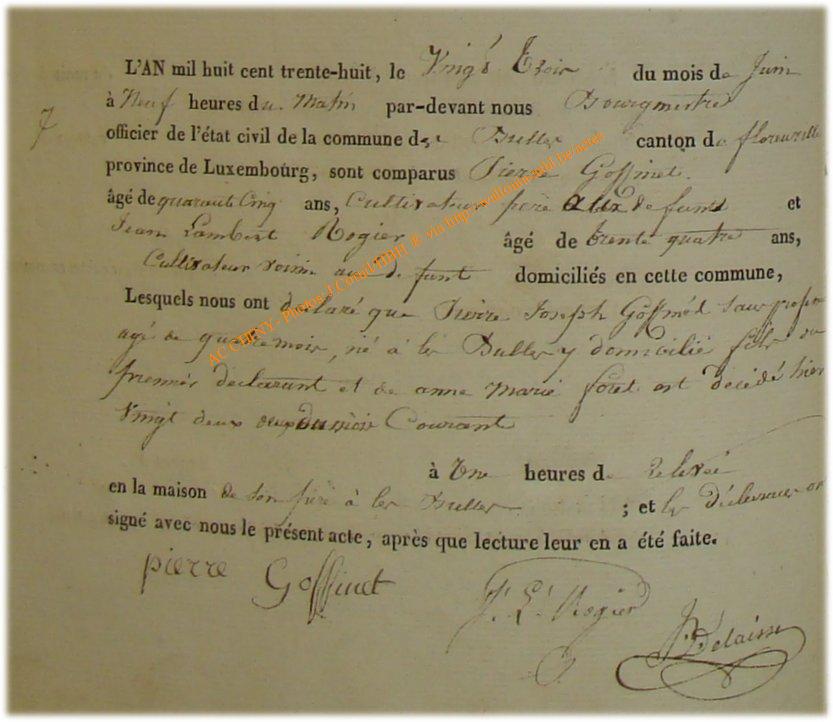 L'AN mil huit cent trente-huit, le Vingt Trois du mois de Juin
à Neuf heures du Matin par-devant nous Bourgmestre
7
officier de l'état civil de la commune de Bulles canton de florenville
province de Luxembourg, sont comparus Pierre Goffinet
âgé de quarante Cinq ans, Cultivateur père aux defunt et
Jean Lambert Rogier âgé de trente quatre ans,
Cultivateur voisin au defunt domiciliés en cette commune,
Lesquels nous ont déclaré que Pierre Joseph Goffinet Sans profession
agé de quatre mois, né à les Bulles y domicilié fils du
premier déclarant et de anne Marie foret est décédé hier
Vingt deux du mois Courant
à Une heures de relevé
en la maison de son père à les Bulles ; et les déclarants ont
signé avec nous le présent acte, après que lecture leur en a été faite.
pierre Goffinet J. L. Rogier
Delaisse
ACCHINY- Photos J.Collard HBH ® via http://wallonica.be/azur